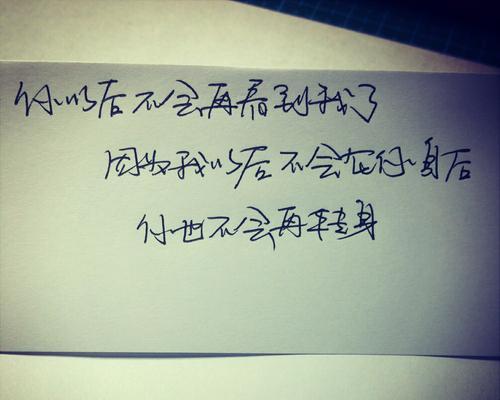 你以后不会再看到我了
因为我以后不会在你身后
你也不会再转身